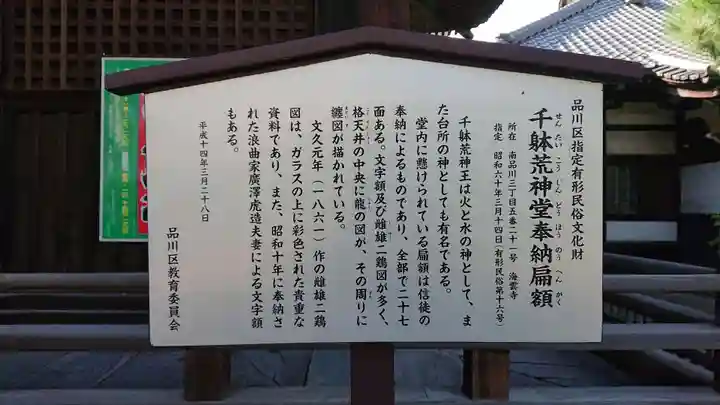 品川区指定有形民俗文化財
せんたいこうじんどうほうのうへんがく
千躰荒神堂奉納扁額
所在 南品川三丁目五番二十一号 海雲寺
指定 昭和六十年三月十四日(有形民俗第十六号)
千躰荒神王は火と水の神として、ま
た台所の神としても有名である。
堂内に懸けられている扁額は信徒の
奉納によるものであり、全部で二十七
面ある。文字額及び雌雄二鶏図が多く、
格天井の中央に龍の図が、その周りに
纏図が描かれている。
文久元年(一八六一)作の雌雄二鶏
図は、ガラスの上に彩色された貴重な
資料であり、また、昭和十年に奉納さ
れた浪曲家廣澤虎造夫妻による文字額
もある。
平成十四年三月二十八日
品川区教育委員会